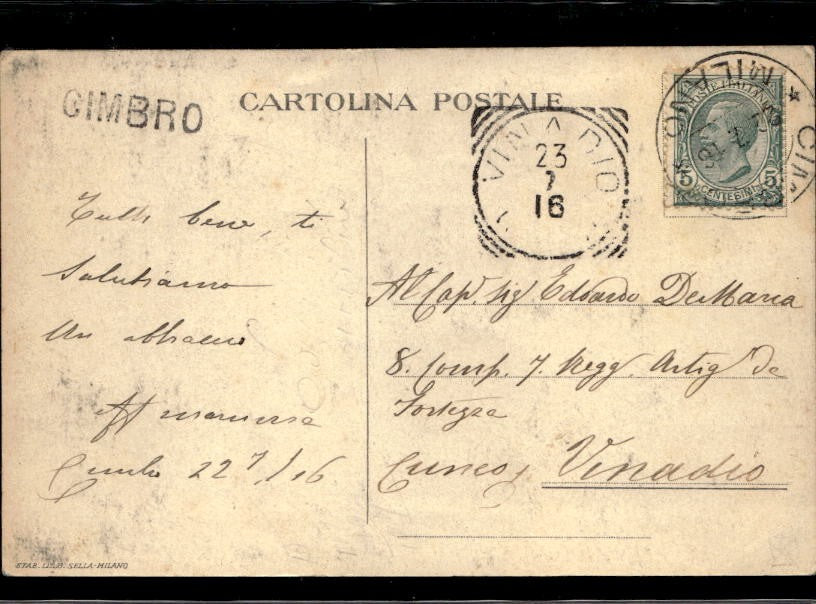 GIMBRO
CARTOLINA POSTALE
VINADIO
23
7
16
MILANO
POSTE ITALIANE
5 CENTESIMI 5
Tutti bene, ti
salutiamo
Un abbraccio
Aff mamma
22 7/16
Al Cap. Sig Edoardo DeMaria
8. Comp. 7. Regg. Artig da
Fortezza
Cuneo, Vinadio
STAB. LITO. SELLA-MILANO